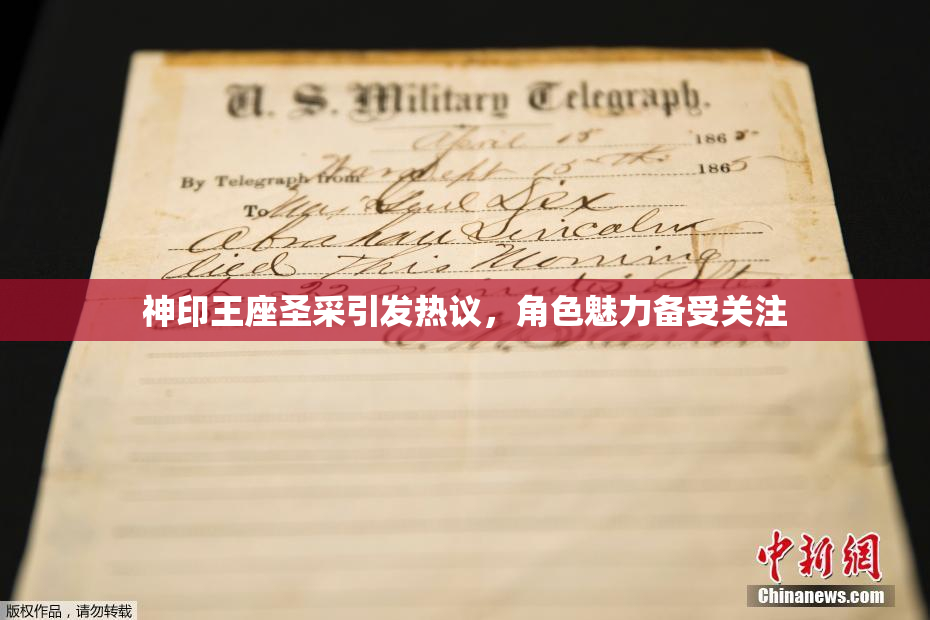 U. S. Military Telegraph.
April 15 1865
By Telegraph from War Dept 15th 1865
To Maj Genl Dix
Abraham Lincoln
died This Morning
at 22 minutes after
神印王座圣采引发热议，角色魅力备受关注
中新网
Chinanews.com
版权作品，请勿转载